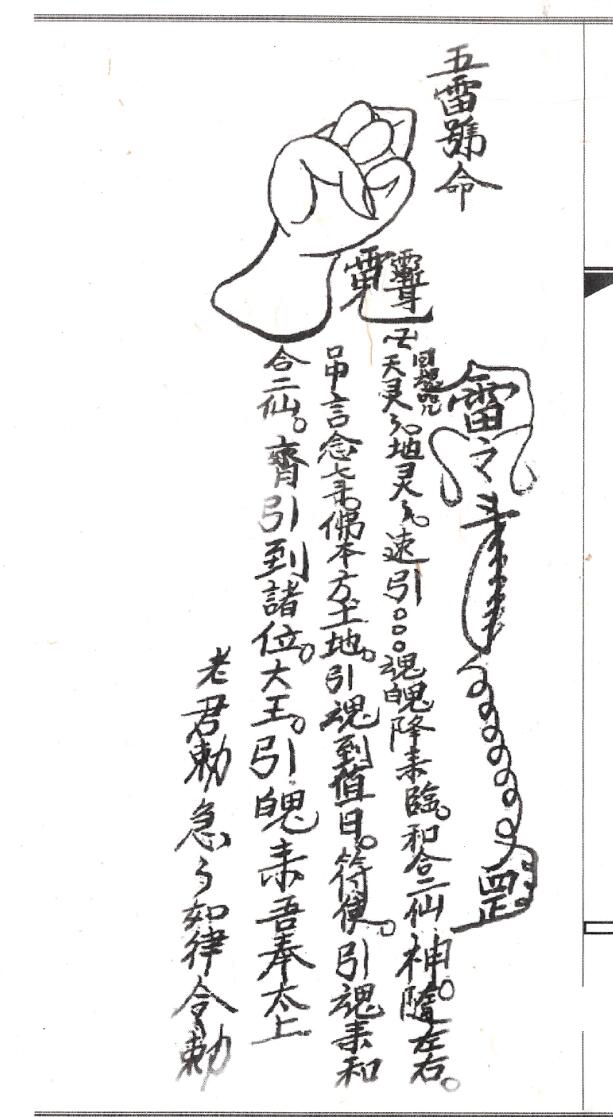 五雷號命
雷令
罡
回魂咒
天灵々地灵々。速引。。。魂魄降来臨。和合二仙神。隨左右。
吊言念七来。佛本方土地。引魂到值日。符使。引魂来和
合二仙。齊引到諸位。大王。引魄来吾奉太上
老君勅急々如律令勅